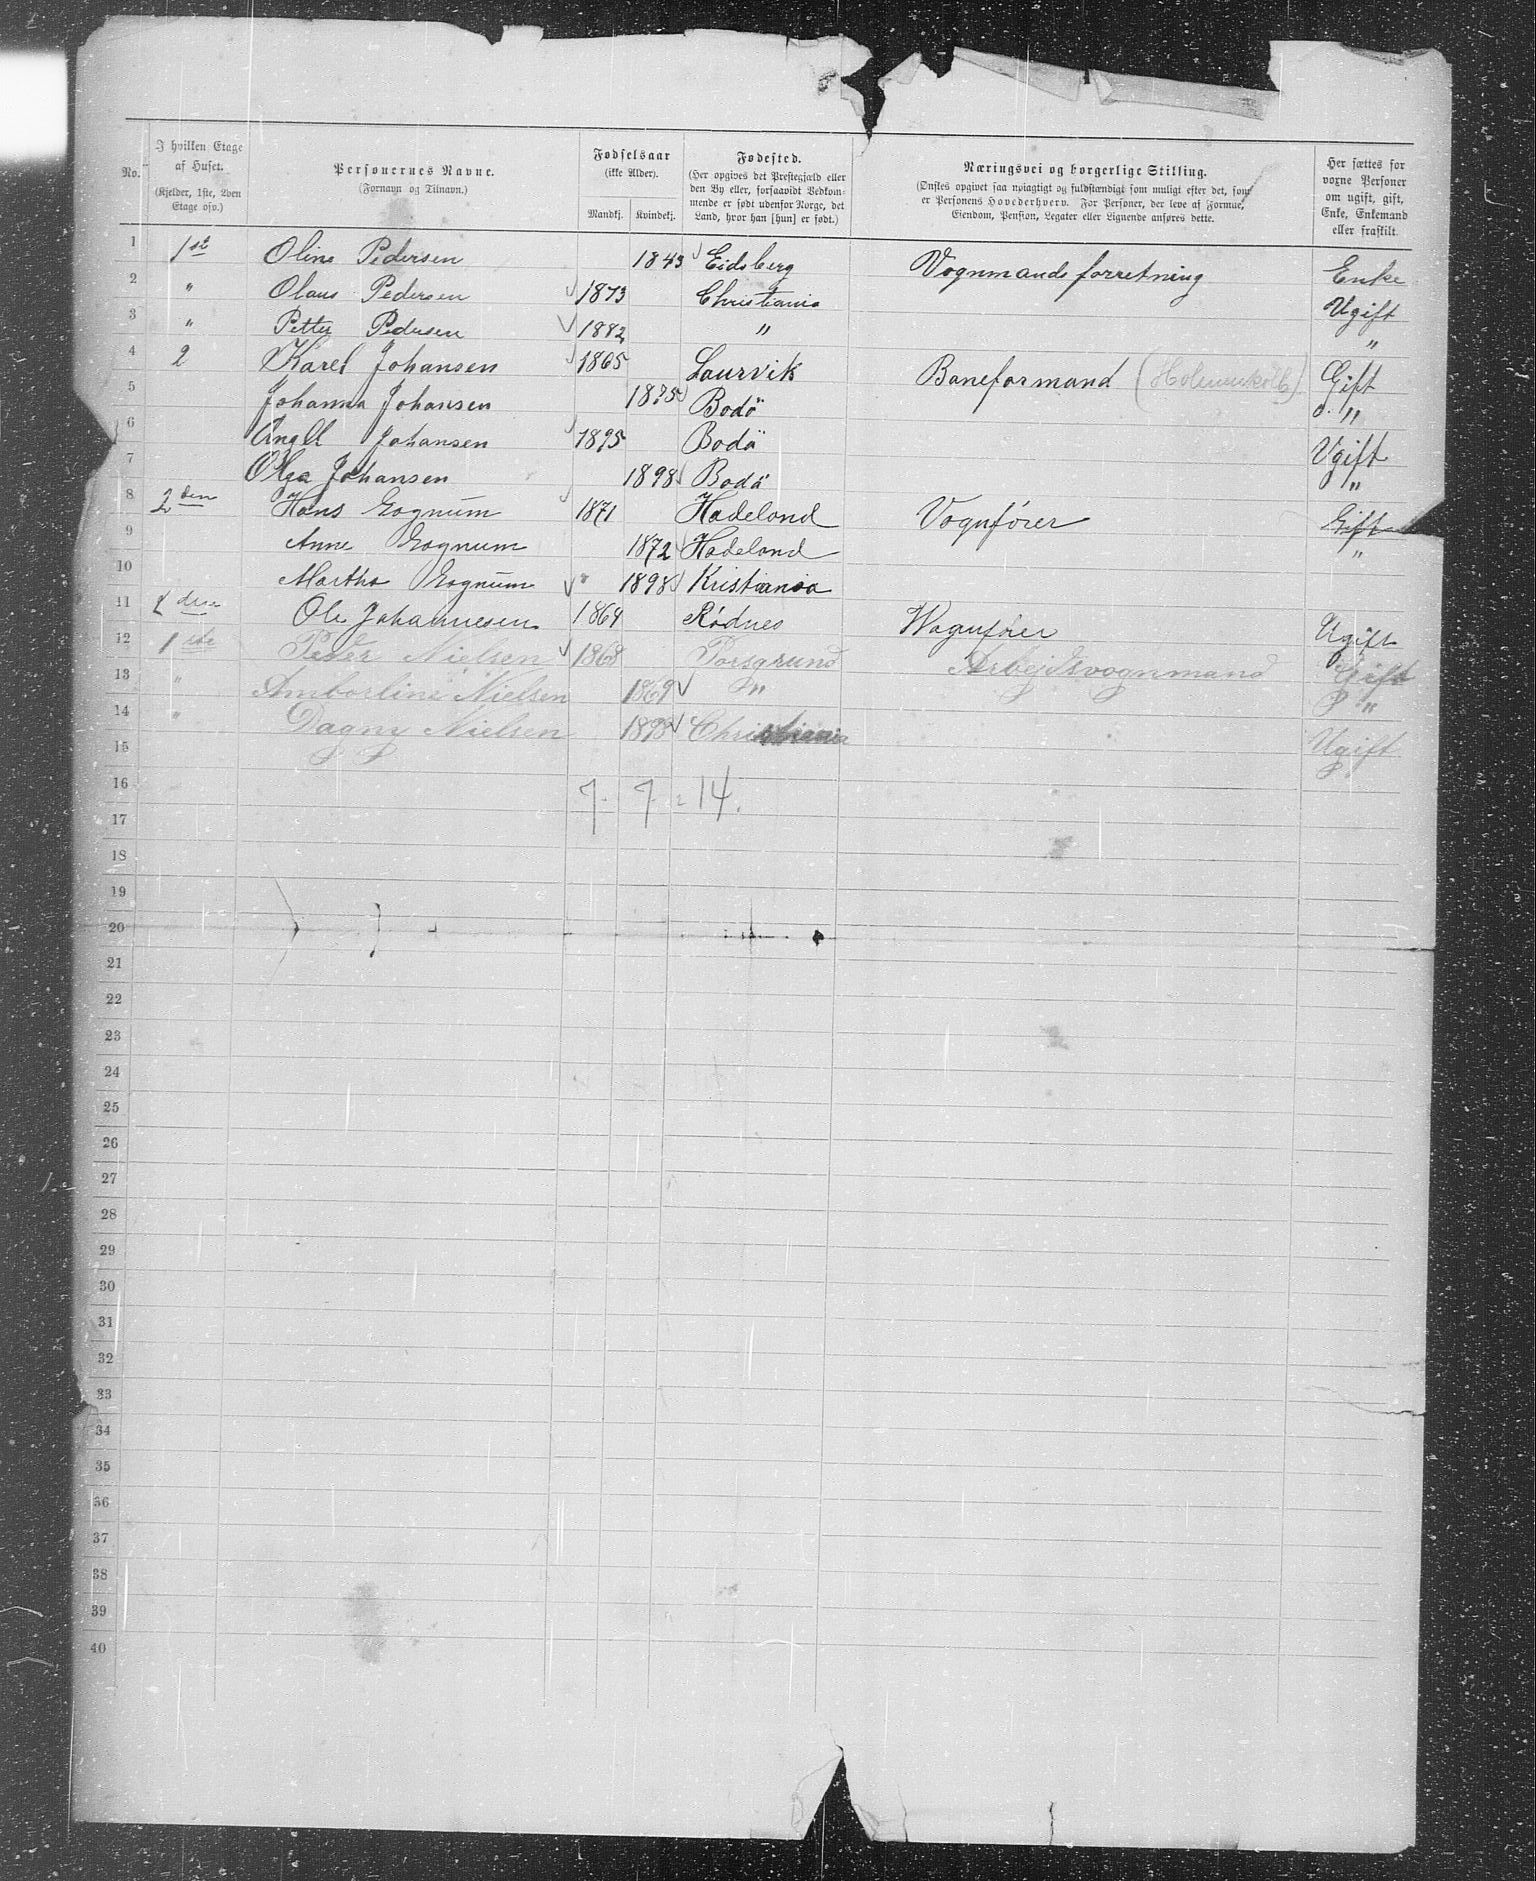 No.
I hvilken Etage af Huset. (Kjelder, 1ste, 2den Etage osv.)
Personernes Navne. (Fornavn og Tilnavn.)
Fødselsaar (ikke Alder). Mandkj. Kvindekj.
Fødested. (Her opgives det Prestegjæld eller den By eller, forsaavidt Vedkommende er født udenfor Norge, det Land, hvor han [hun] er født.)
Næringsvei og borgerlige Stilling. (Ønskes opgivet saa nøiagtigt og fuldstændigt som muligt efter det, som er Personens Hovederhverv. For Personer, der leve af Formue, Eiendom, Pension, Legater eller Lignende anføres dette.
Her sættes for voxne Personer om ugift, gift, Enke, Enkemand eller fraskilt.
1 1st Oline Pedersen 1843 Eidsberg Vognmandsforretning Enke
2 " Olaus Pedersen 1873 Christiania Ugift
3 " Petter Pedersen 1882 " "
4 2 Karel Johansen 1865 Laurvik Baneformand Gift
5 Johanna Johansen 1875 Bodö "
6 Johansen 1895 Bodö Ugift
7 Olga Johansen 1898 Bodö "
8 2den Hans Gognum 1871 Hadeland Vognfører Gift
9 Anne Gognum 1872 Hadeland "
10 Martha Gognum " 1898 Kristiania
11 2den Ole Johannesen 1864 Rødnes Wognfører Ugift
12 1ste Peder Nielsen 1868 Porsgrund Arbejdsvognmand Gift
13 " Ambortine Nielsen 1869 " "
14 " Dagny Nielsen 1898 Christiania Ugift
15
16 7 - 7 = 14.
17
18
19
20
21
22
23
24
25
26
27
28
29
30
31
32
33
34
35
36
37
38
39
40